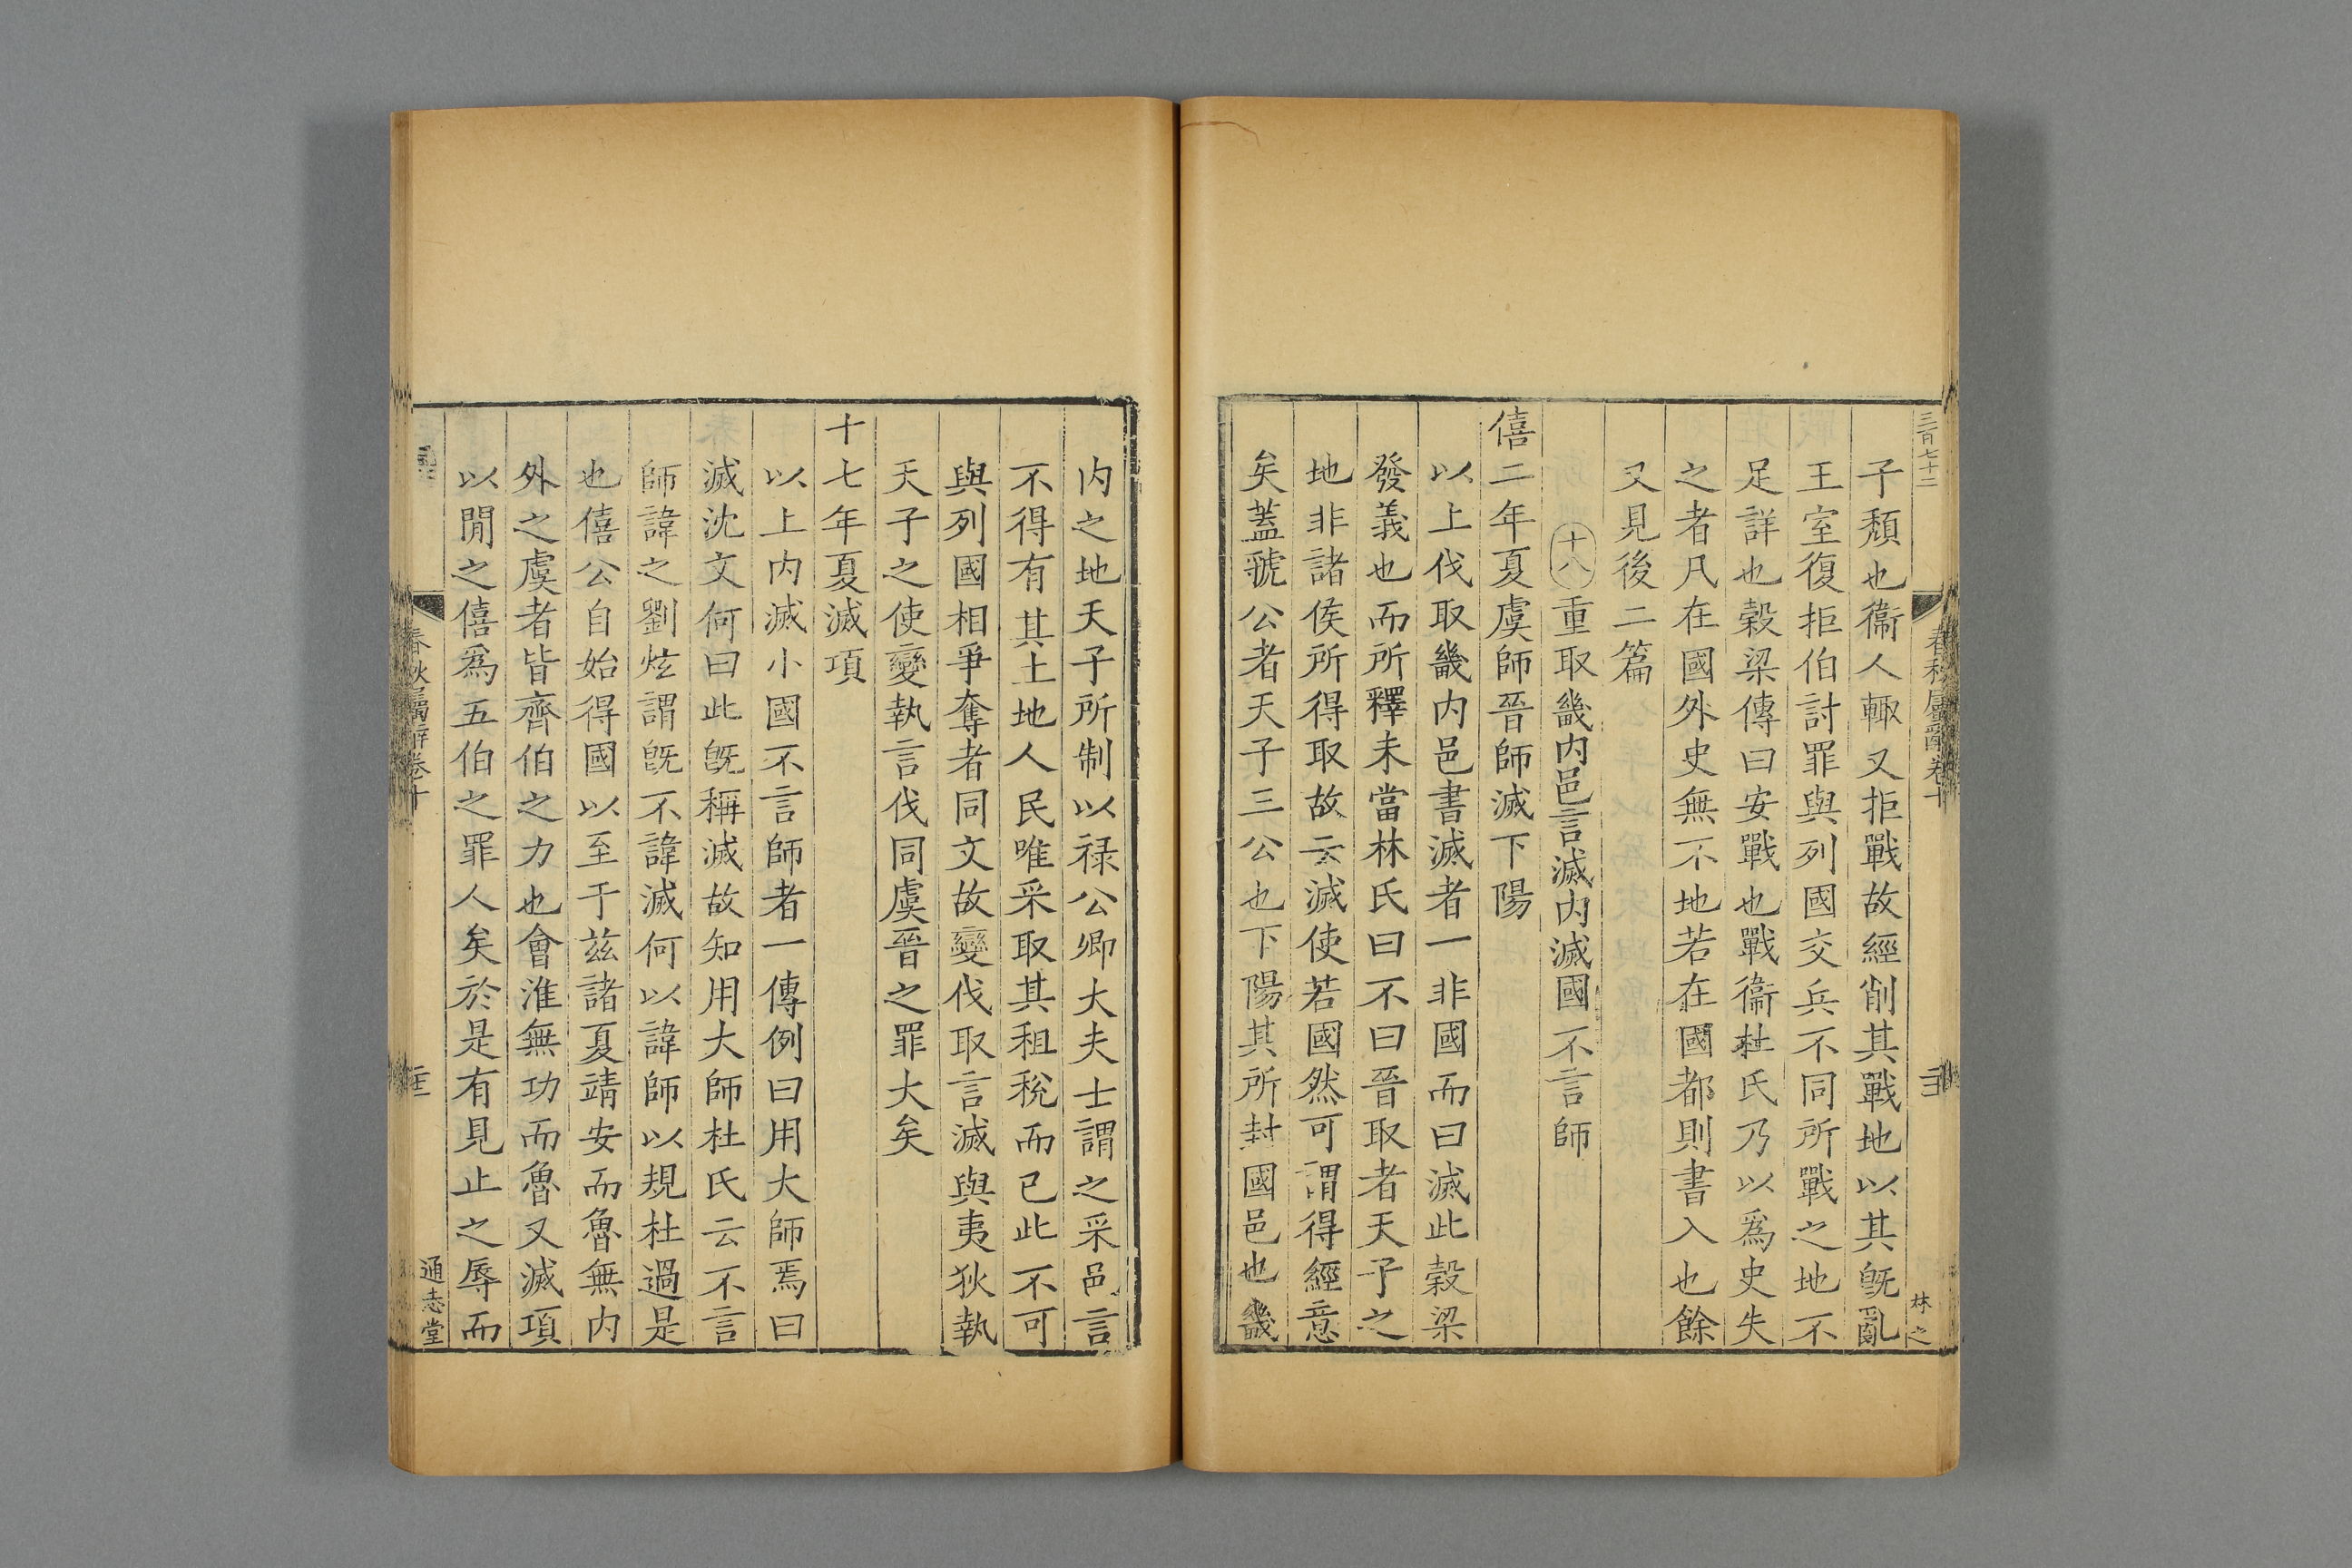 三百七十二
春秋屬辭卷十
林之
子頹也衞人輙又拒戰故經削其戰地以其旣亂
王室復拒伯討罪與列國交兵不同所戰之地不
足詳也穀梁傳曰安戰也戰衞杜氏乃以爲史失
之者凡在國外史無不地若在國都則書入也餘
又見後二篇
十八重取畿内邑言滅内滅國不言師
僖二年夏虞師晉師滅下陽
以上伐取畿内邑書滅者一非國而曰滅此穀梁
發義也而所釋未當林氏曰不曰晉取者天子之
地非諸侯所得取故云滅使若國然可謂得經意
矣蓋虢公者天子三公也下陽其所封國邑也畿
内之地天子所制以禄公卿大夫士謂之采邑言
不得有其土地人民唯采取其租稅而已此不可
與列國相爭奪者同文故變伐取言滅與夷狄執
天子之使變執言伐同虞晉之罪大矣
十七年夏滅項
以上内滅小國不言師者一傳例曰用大師焉曰
滅沈文何曰此旣稱滅故知用大師杜氏云不言
師諱之劉炫謂旣不諱滅何以諱師以規杜過是
也僖公自始得國以至于兹諸夏靖安而魯無内
外之虞者皆齊伯之力也會淮無功而魯又滅項
以閒之僖爲五伯之罪人矣於是有見止之辱而
春秋屬辭卷十
通志堂